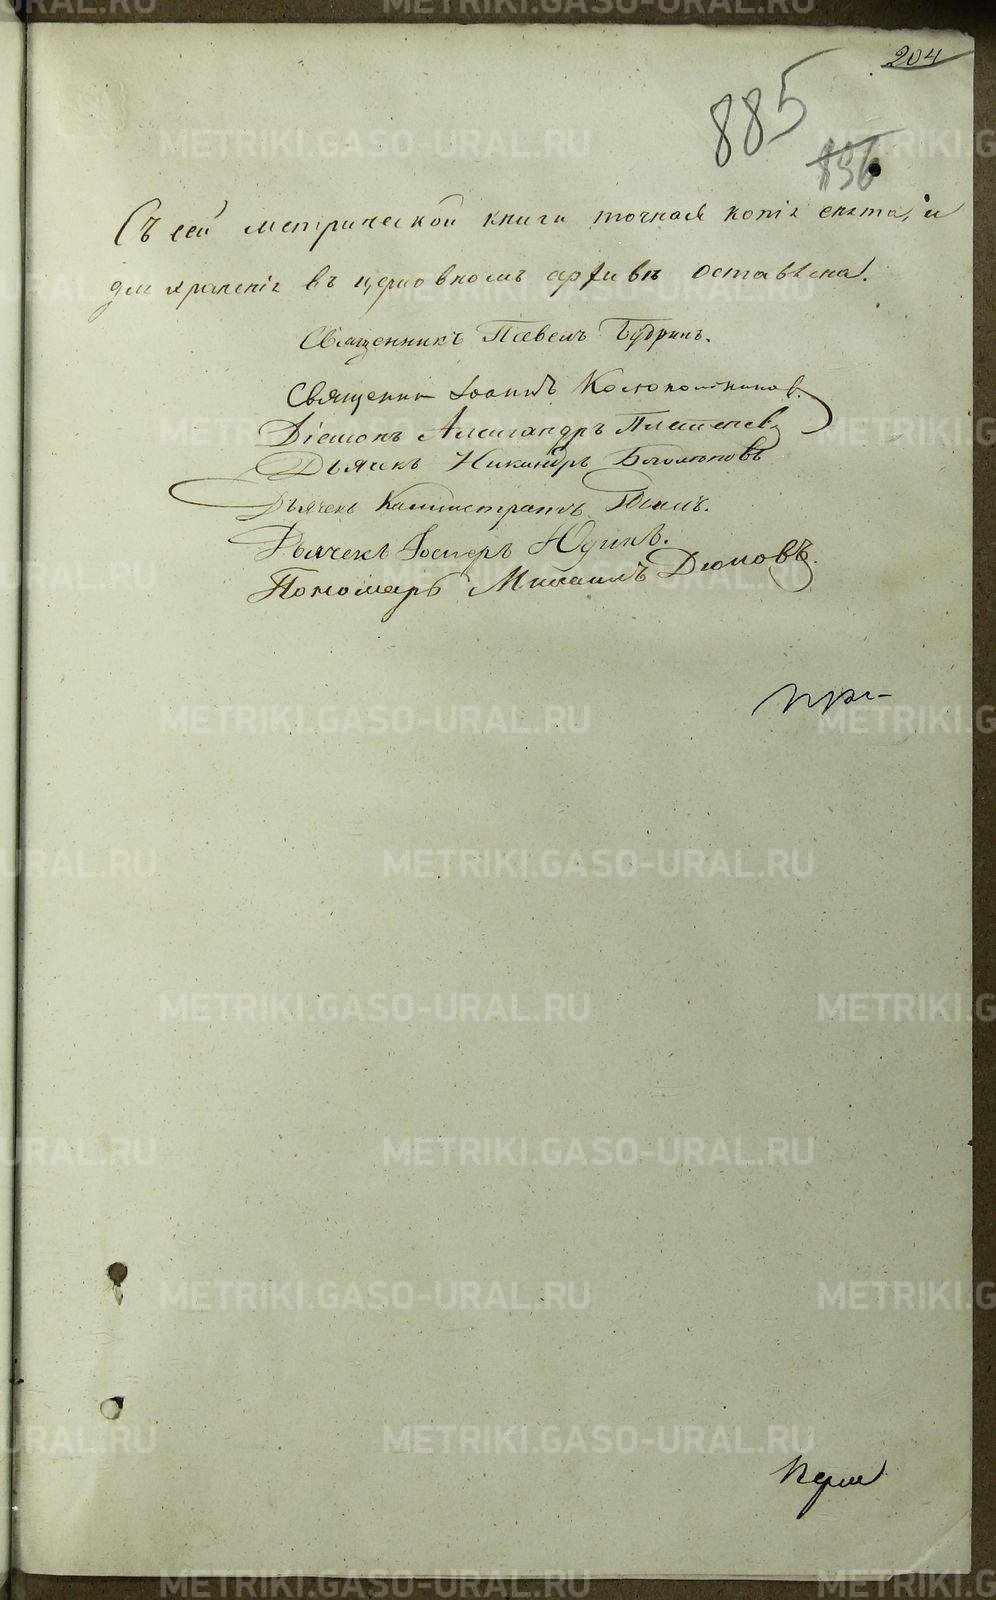 204
885
896
Съ сей метрической книги точная копія снята, и
для храненія въ церковномъ архивѣ оставлена.
Священникъ Павелъ Будринъ.
Священник Іоаннъ Колокольников.
Діаконъ Александръ
Дьячекъ Никандръ Боголюбовъ
Дьячекъ Каллистратъ
Дьячекъ Іосифъ Юдинъ.
Пономарь Михаилъ Дюковъ.
METRIKI.GASO-URAL.RU